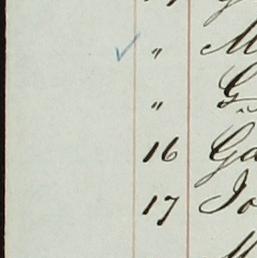 " M
" G
16 Ga
17 Jo